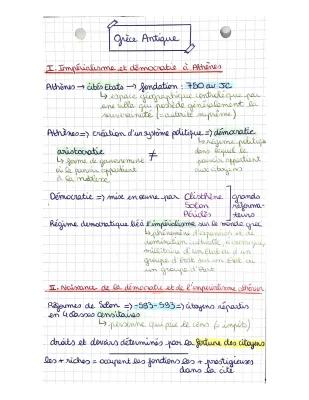 Grèce Antique
I. Impérialisme et démocratie à Athènes
Athènes → cités Etats → fondation : 750 av JC
↳ espace géographique contrôlé par
une ville qui possède généralement la
souveraineté (= autorité suprême)
Athènes => création d'un système politique => démocratie
aristocratie ≠ ↳ régime politique
↳ forme de gouvernement dans lequel le
où le pouvoir appartient pouvoir appartient
à la noblesse aux citoyens
Démocratie => mise en œuvre par Clisthène grands
Solon réforma-
Périclès teurs
Régime démocratique lié à l'impérialisme sur le monde grec
↳ phénomène d'expansion et de
domination culturelle, économique,
militaire d'un Etat ou d'un
groupe d'Etat sur un Etat ou
un groupe d'Etat
II. Naissance de la démocratie et de l'impérialisme athénien
Réformes de Solon => -593-593 => citoyens répartis
en 4 classes censitaires
↳ personne qui paie le cens (= impôts)
droits et devoirs déterminés par la fortune des citoyens
les + riches = occupent les fonctions les + prestigieuses
dans la cité